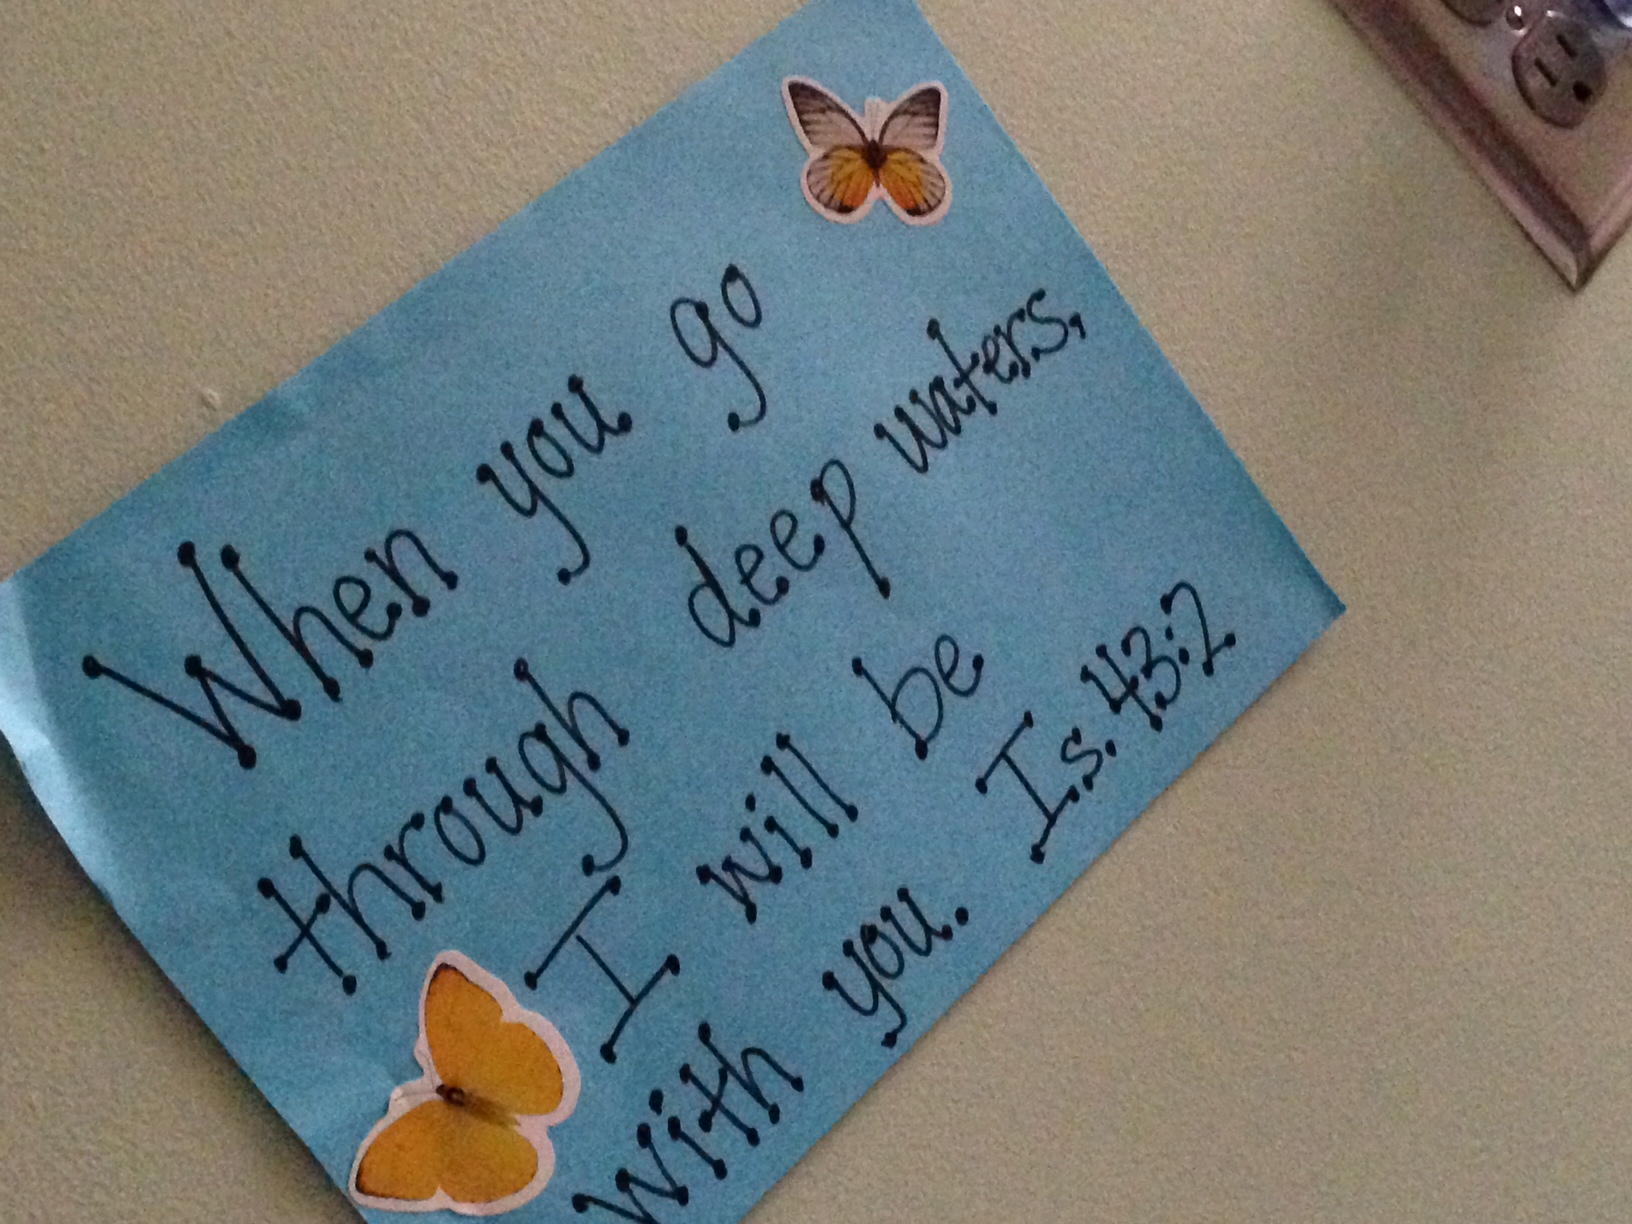 When you go
through deep waters,
I will be
with you. Is. 43:2